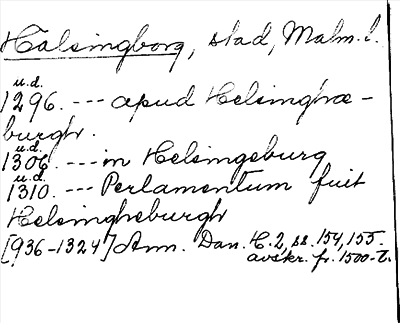 Halsingborg, stad, Malm. l.
u.d.
1296. --- apud Helsinghæ-
burgh.
u.d.
1306. --- in Helsingeburg
u.d.
1310. --- Perlamentum fuit
Helsingheburgh
[936-1324] Ann. Dan. H. 2, ss. 154, 155.
avskr. fr. 1500-t.